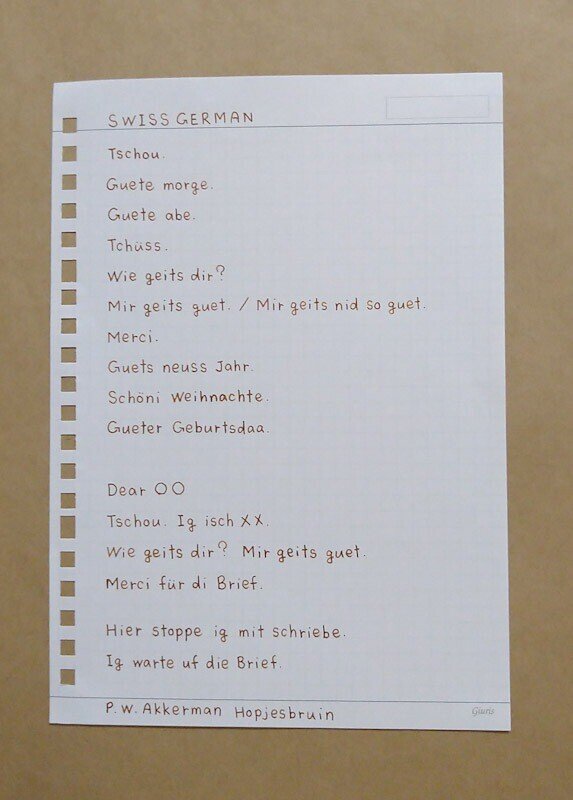 SWISS GERMAN
Tschou.
Guete morge.
Guete abe.
Tchüss.
Wie geits dir?
Mir geits guet. / Mir geits nid so guet.
Merci.
Guets neuss Jahr.
Schöni Weihnachte.
Gueter Geburtsdaa.
Dear OO
Tschou. Ig isch XX.
Wie geits dir? Mir geits guet.
Merci für di Brief.
Hier stoppe ig mit schriebe.
Ig warte uf die Brief.
P.W. Akkerman Hopjesbruin
Giuris